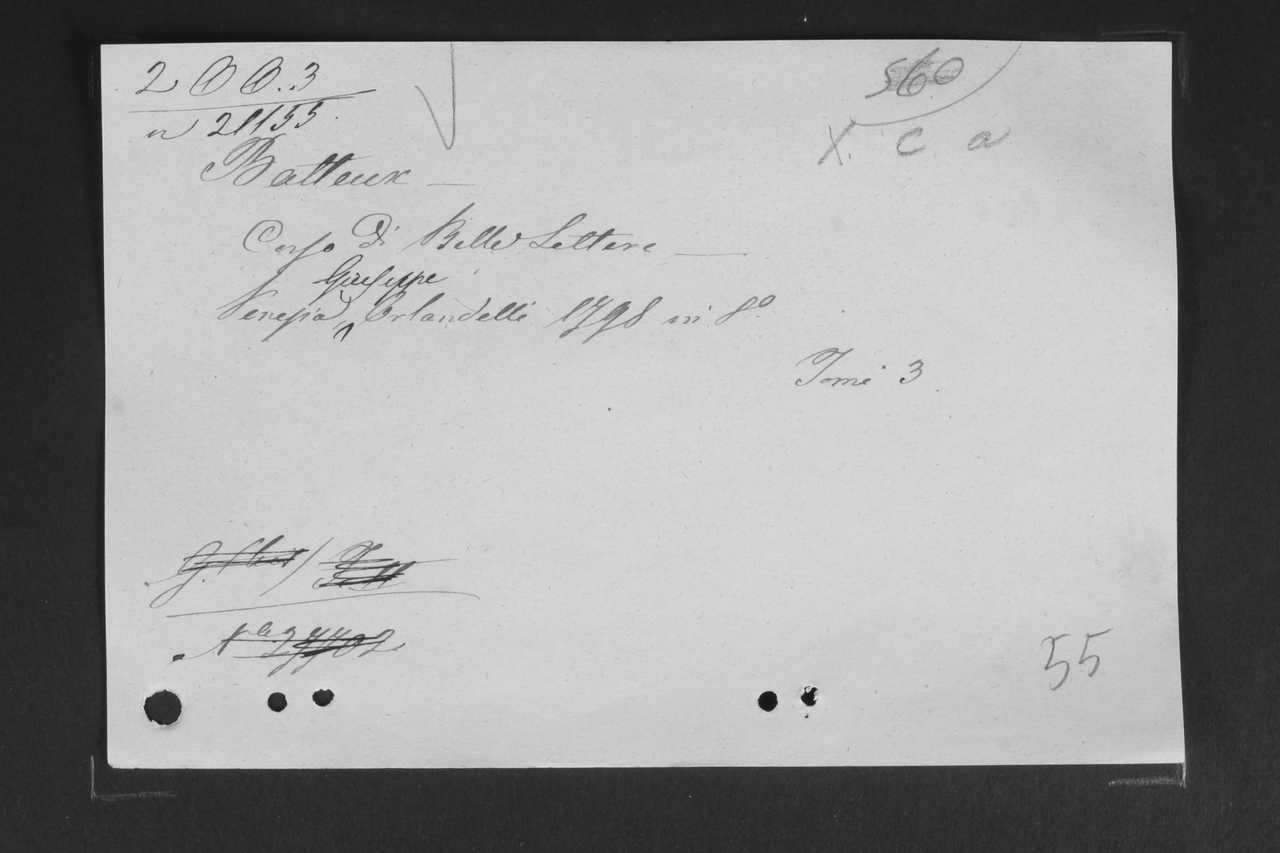 2 O O. 3
560
n 21155.
X. C a
Batteux —
Corso di Belle Lettere —
Giuseppe
Venezia Orlandelli 1798 in 8º
Tomi 3
Nº 27702
55